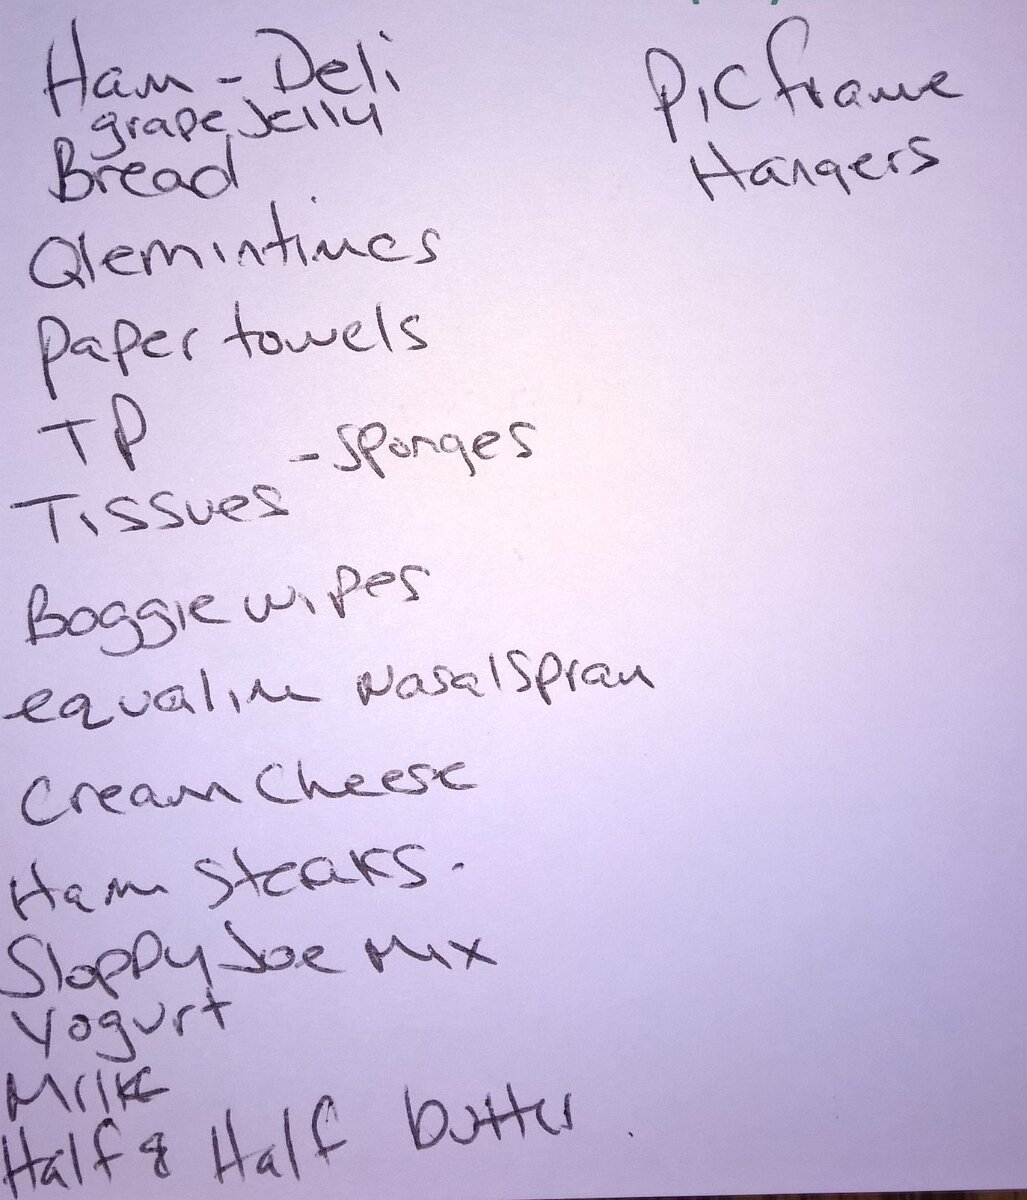 Ham - Deli
grape Jelly
Bread
Qlemintines
paper towels
TP
- Sponges
Tissues
Boggie wipes
equaline Nasal Spray
Cream Cheese
Ham Steaks.
Sloppy Joe Mix
Yogurt
Milk
Half & Half butter
Pic frame
Hangers